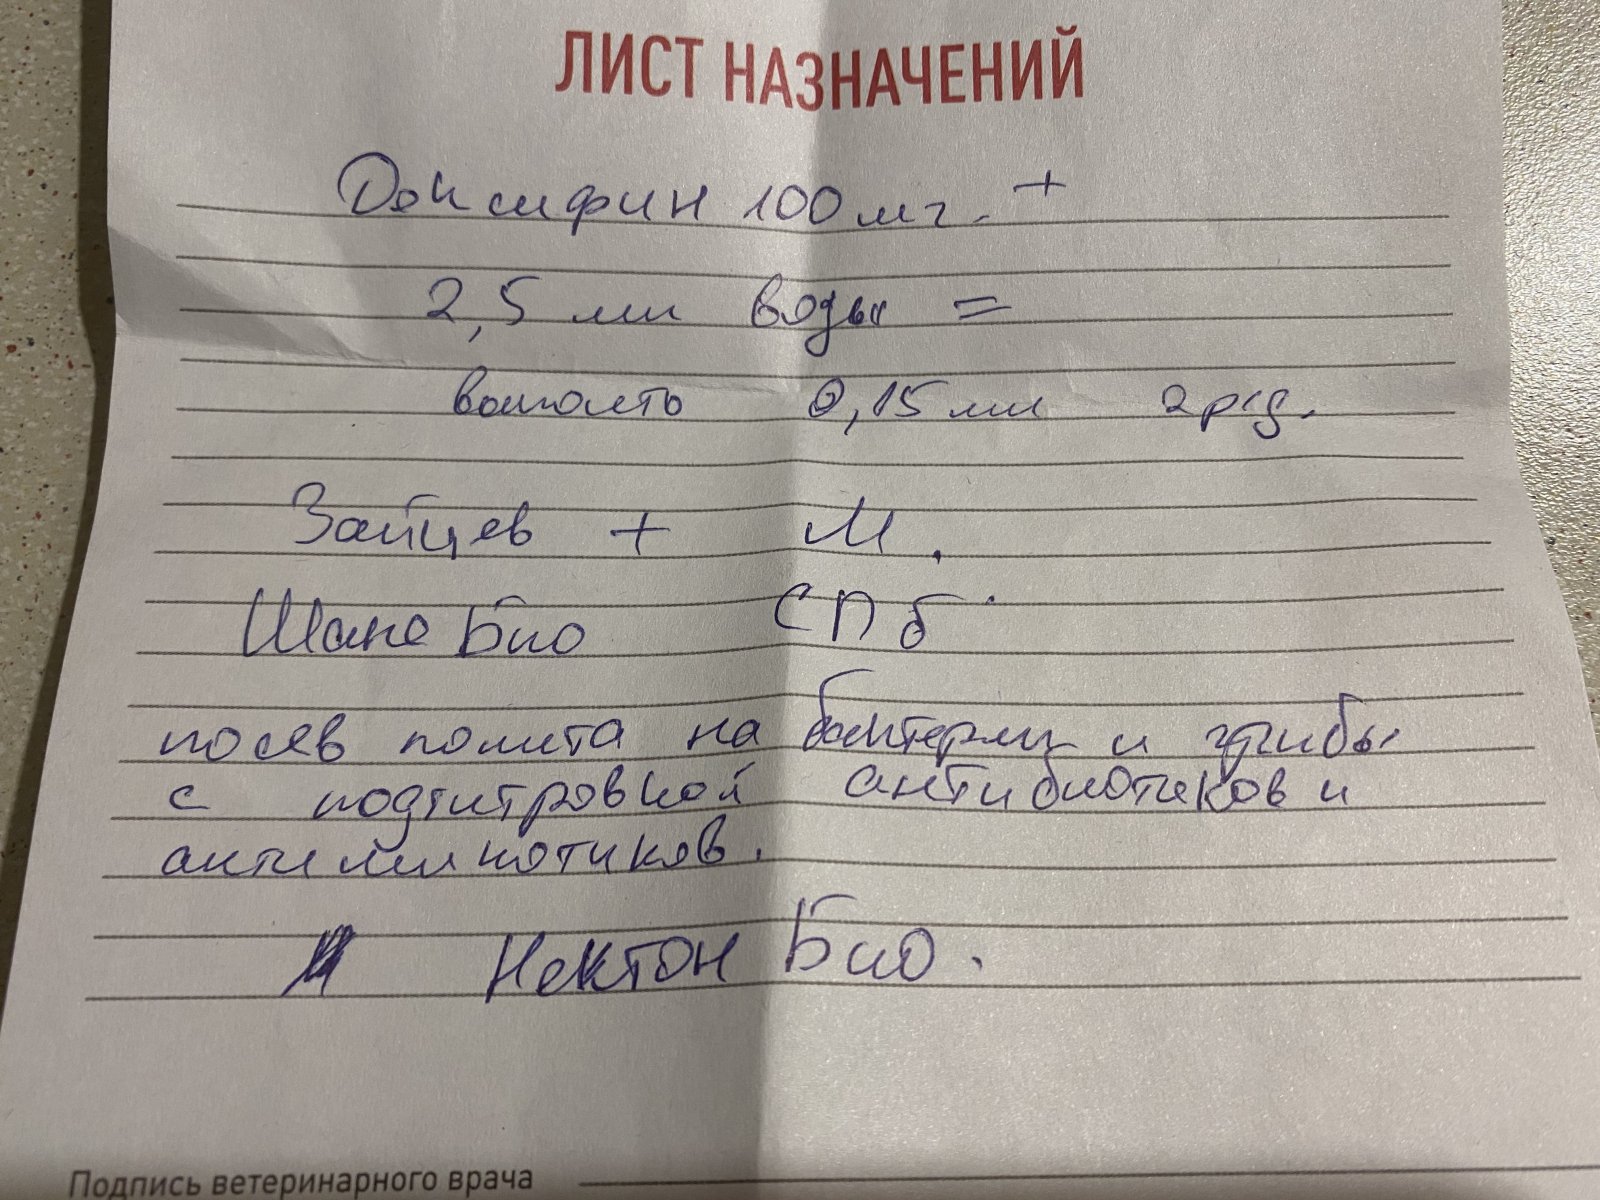 ЛИСТ НАЗНАЧЕНИЙ
100 мг. +
2,5 мл воды =
0,15 мл 2р/д.
Зайцев + М.
Шанс Био СПб
посев помёта на бактерии и грибы
с подтитровкой антибиотиков и
антимикотиков.
Нектон Био.
Подпись ветеринарного врача